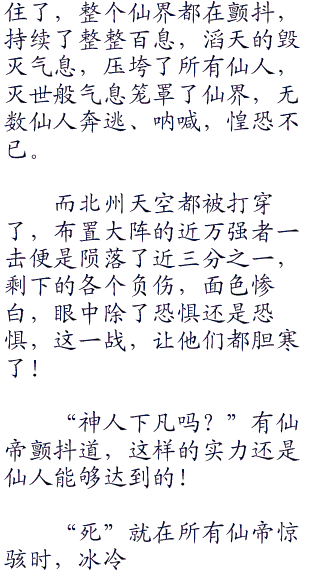 住了，整个仙界都在颤抖，
持续了整整百息，滔天的毁
灭气息，压垮了所有仙人，
灭世般气息笼罩了仙界，无
数仙人奔逃、呐喊，惶恐不
已。
而北州天空都被打穿
了，布置大阵的近万强者一
击便是陨落了近三分之一，
剩下的各个负伤，面色惨
白，眼中除了恐惧还是恐
惧，这一战，让他们都胆寒
了！
“神人下凡吗？”有仙
帝颤抖道，这样的实力还是
仙人能够达到的！
“死”就在所有仙帝惊
骇时，冰冷